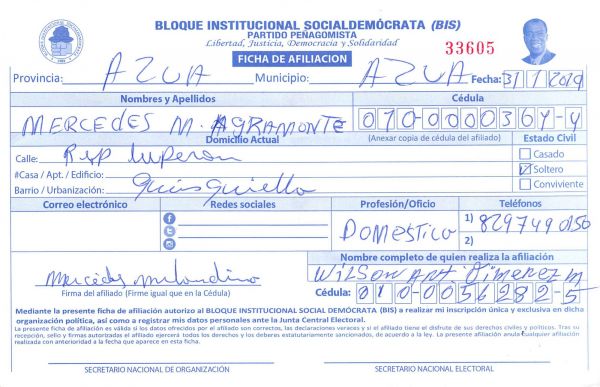 BLOQUE INSTITUCIONAL SOCIALDEMÓCRATA (BIS)
PARTIDO PEÑAGOMISTA
Libertad, Justicia, Democracia y Solidaridad
33605
FICHA DE AFILIACION
Provincia: AZUA Municipio: AZUA Fecha: 31/1/2019
Nombres y Apellidos Cédula
MERCEDES M. AGRAMONTE 010-0000364-4
Domicilio Actual (Anexar copia de cédula del afiliado) Estado Civil
Calle: Rep Luperon Casado
#Casa / Apt. / Edificio: Soltero
Barrio / Urbanización: Conviviente
Correo electrónico Redes sociales Profesión/Oficio Teléfonos
DOMESTICO 1) 829749 0150
2)
Nombre completo de quien realiza la afiliación
WILSON ANT. JIMENEZ M
Mercedes
Firma del afiliado (Firme igual que en la Cédula) Cédula: 010-0056282-5
Mediante la presente ficha de afiliación autorizo al BLOQUE INSTITUCIONAL SOCIAL DEMÓCRATA (BIS) a realizar mi inscripción única y exclusiva en dicha
organización política, así como a registrar mis datos personales ante la Junta Central Electoral.
La presente ficha de afiliación es válida si los datos ofrecidos por el afiliado son correctos, las declaraciones veraces y si el afiliado tiene el disfrute de sus derechos civiles y políticos. Tras su
recepción, sello y firmas autorizadas el afiliado ejercerá todos los derechos y los deberes estatutariamente sancionados, de acuerdo a la ley. La presente afiliación anula cualquier afiliación
realizada con anterioridad a la fecha que aparece en esta ficha.
SECRETARIO NACIONAL DE ORGANIZACIÓN SECRETARIO NACIONAL ELECTORAL